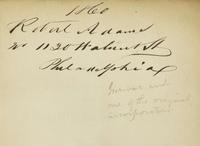 1860
Robert Adams
No 1120 Walnut St
Philadelphia
one of the original